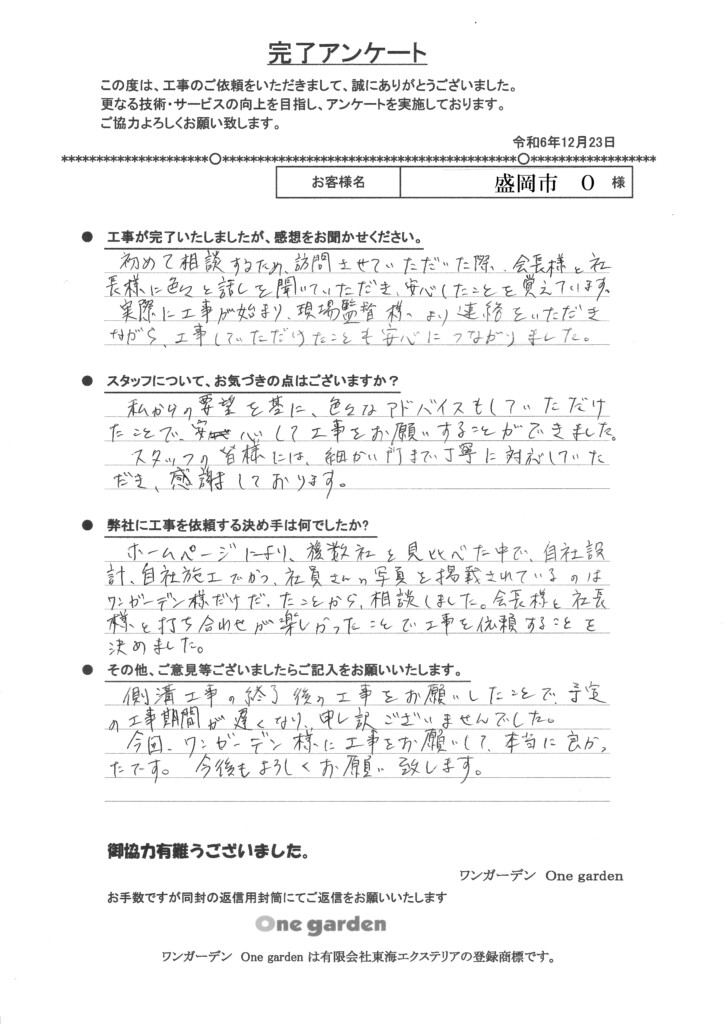 完了アンケート
この度は、工事のご依頼をいただきまして、誠にありがとうございました。
更なる技術・サービスの向上を目指し、アンケートを実施しております。
ご協力よろしくお願い致します。
令和6年12月23日
お客様名 盛岡市 O 様
● 工事が完了いたしましたが、感想をお聞かせください。
初めて相談するため、訪問させていただいた際、会長様と社
長様に色々と話しを聞いていただき、安心したことを覚えています。
実際に工事が始まり、現場監督様より連絡をいただき
ながら、工事していただけたことも安心につながりました。
● スタッフについて、お気づきの点はございますか？
私からの要望を基に、色々なアドバイスもしていただけ
たことで、安心して工事をお願いすることができました。
スタッフの皆様には、細かい所まで丁寧に対応していた
だき、感謝しております。
● 弊社に工事を依頼する決め手は何でしたか?
ホームページにより、複数社を見比べた中で、自社設
計、自社施工でかつ、社員さんの写真を掲載されているのは
ワンガーデン様だけだったことから、相談しました。会長様と社長
様と打ち合わせが楽しかったことで工事を依頼することを
決めました。
● その他、ご意見等ございましたらご記入をお願いいたします。
側溝工事の終了後の工事をお願いしたことで、予定
の工事期間が遅くなり、申し訳ございませんでした。
今回、ワンガーデン様に工事をお願いして、本当に良かっ
たです。今後もよろしくお願い致します。
御協力有難うございました。
ワンガーデン One garden
お手数ですが同封の返信用封筒にてご返信をお願いいたします
One garden
ワンガーデン One garden は有限会社東海エクステリアの登録商標です。